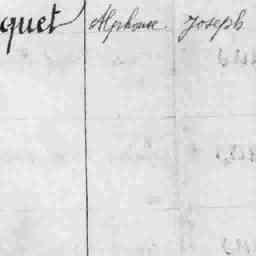 quet Alphonse. Joseph